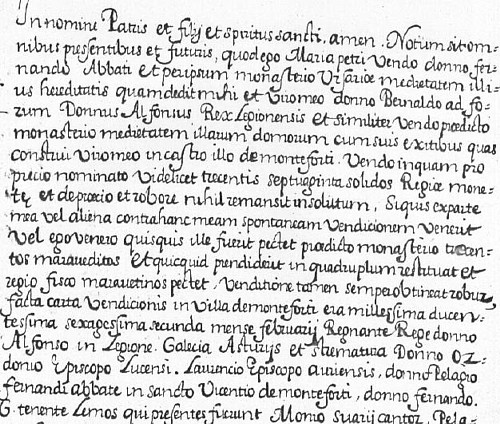 In nomine Patris et filij et spiritus sancti. amen. Notum sit om-
nibus presentibus et futuris, quod ego Maria petri vendo donno fer-
nando Abbati et per ipsum monasterio Ursariæ medietatem illi-
us hereditatis quam dedit mihi et viro meo donno Bernaldo ad fo-
rum Donnus Alfonsus Rex Legionensis et similiter vendo prædicto
monasterio medietatem illarum domorum cum suis exitibus quas
construi viro meo in castro illo de monteforti. Vendo inquam pro
precio nominato videlicet trecentis septuaginta solidos Regiæ mone-
tę, et de præcio et robore nihil remansit insolutum, Siquis ex parte
mea vel aliena contra hanc meam spontaneam Vendicionem venerit
vel ego venero quisquis ille fuerit pectet prædicto monasterio trecen-
tos maraueditos et quicquid prendiderit in quadruplum restituat et
regio fisco marauetinos pectet. venditione tamen semper obtineat robur,
facta carta Vendicionis in Villa de monteforti era millessima ducen-
tessima sexagessima secunda mense februarij Regnante Rege donno
Alfonso in Legione. Galecia Asturijs et stremature Donno Oz-
donio Episcopo Lucensi. Laurencio Episcopo auriensis, donno Pelagio
fernandi abbate in sancto Vicentio de monteforti, donno fernando.
G. tenente Lemos qui presentes fuerunt Monio suarij cantor, Pela-